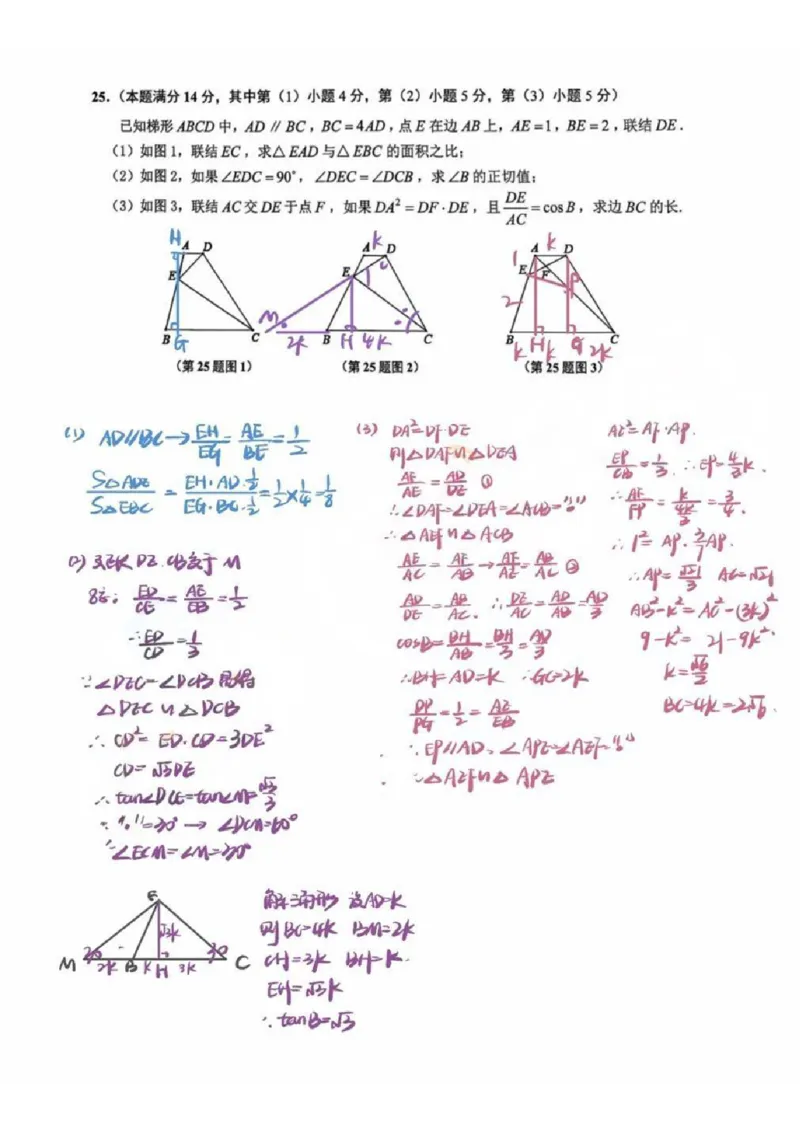 25.（本题满分14分，其中第（1）小题4分，第（2）小题5分，第（3）小题5分）
已知梯形ABCD中，AD∥BC，BC=4AD，点E在边AB上，AE=1，BE=2，联结DE.
（1）如图1，联结EC，求△EAD与△EBC的面积之比；
（2）如图2，如果∠EDC=90°，∠DEC=∠DCB，求∠B的正切值；
（3）如图3，联结AC交DE于点F，如果DA²=DF·DE，且DE/AC=cosB，求边BC的长.
H A D E B G C
（第25题图1）
k A D E M B H C 2k 4k
（第25题图2）
k A D 1 E F P 2 B H G C k k 2k
（第25题图3）
(1) AD∥BC→EH/EG=AE/BE=1/2
S△ADE/S△EBC=EH·AD·1/2/EG·BC·1/2=1/2×1/4=1/8
(2) 延长DE、CB交于M
ED/CE=AE/EB=1/2
∴ED/CD=1/3
∵∠DEC=∠DCB
△DEC∽△DCB
∴CD²=ED·CD=3DE²
CD=√3DE
∴tan∠DCE=tan∠M=√3/3
=30°→∠DCM=60°
∠ECM=∠M=30°
E √3k 30 30 M 2k B k H 3k C
解三角形 设AD=k
则BC=4k BM=2k
CH=3k BH=k.
EH=√3k
∴tanB=√3
(3) DA²=DF·DE
则△DAF∽△DEA
AF/AE=AD/DE ①
∴∠DAF=∠DEA=∠ACB
∴△AEF∽△ACB
AE/AC=AF/AB→AF/AE=AB/AC ②
AD/DE=AB/AC. ∴DE/AC=AD/AB=AD/3
cosB=BH/AB=BH/3=AD/3
∴BH=AD=k ∴GC=2k
DP/PG=1/2=AE/EB
∴EP∥AD、∠APE=∠AEF
∴△AEF∽△APE
AE²=AF·AP.
EP/CB=1/3. ∴EP=4/3k.
∴AF/FP=k/(4k/3)=3/4.
∴1²=AP·3/7AP.
∴AP=√21/3 AC=√21
AB²-k²=AC²-(3k)²
9-k²=21-9k²
k=√6/2
BC=4k=2√6.